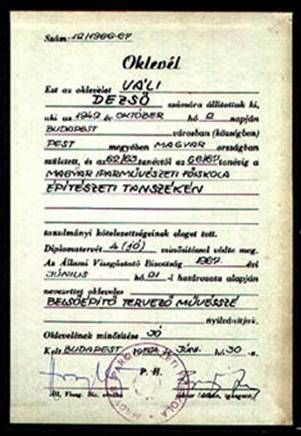 Szám: 12/1966-67
Oklevél
Ezt az oklevelet VÁLI
DEZSŐ számára állítottuk ki,
aki az 1942 év OKTÓBER hó 2 napján
BUDAPEST városban (községben)
PEST megyében MAGYAR országban
született, és az 62/63 tanévtől az 66/67 tanévig a
MAGYAR IPARMŰVÉSZETI FŐISKOLA
ÉPÍTÉSZETI TANSZÉKÉN
tanulmányi kötelezettségeinek eleget tett.
Diplomatervét 4 (JÓ) minősítéssel védte meg.
Az Állami Vizsgáztató Bizottság 1967 évi
JÚNIUS hó 21-i határozata alapján
nevezettet okleveles
BELSŐÉPÍTŐ TERVEZŐ MŰVÉSSZÉ
nyilvánítjuk.
Oklevelének minősítése JÓ
Kelt BUDAPEST 1967. JÚNI. hó 30-n.
P. H.
Áll. Vizsg. Biz. elnöke